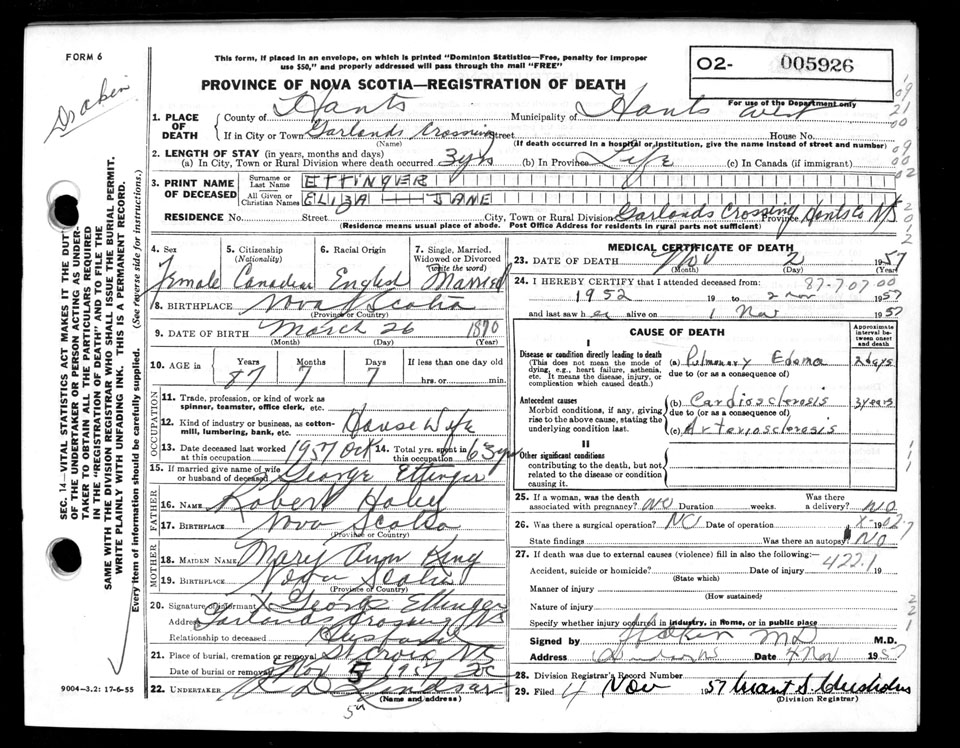 FORM 6
Draken
This form, if placed in an envelope, on which is printed "Dominion Statistics—Free, penalty for improper
use $50," and properly addressed will pass through the mail "FREE"
PROVINCE OF NOVA SCOTIA—REGISTRATION OF DEATH
O2- 005926
For use of the Department only
SEC. 14—VITAL STATISTICS ACT MAKES IT THE DUTY
OF THE UNDERTAKER OR PERSON ACTING AS UNDER-
TAKER TO OBTAIN ALL THE PARTICULARS REQUIRED
IN THE "REGISTRATION OF DEATH" AND TO FILE THE
SAME WITH THE DIVISION REGISTRAR WHO SHALL ISSUE THE BURIAL PERMIT.
WRITE PLAINLY WITH UNFADING INK. THIS IS A PERMANENT RECORD.
Every item of information should be carefully supplied. (See reverse side for instructions.)
1. PLACE OF DEATH
County of Hants Municipality of Hants West
If in City or Town Garlands Crossing Street House No.
(Name) (If death occurred in a hospital or institution, give the name instead of street and number)
2. LENGTH OF STAY (in years, months and days)
(a) In City, Town or Rural Division where death occurred 3 yrs (b) In Province Life (c) In Canada (if immigrant)
3. PRINT NAME OF DECEASED
Surname or Last Name ETTINGER
All Given or Christian Names ELIZA JANE
RESIDENCE No. Street City, Town or Rural Division Garlands Crossing Province Hants Co NS
(Residence means usual place of abode. Post Office Address for residents in rural parts not sufficient)
4. Sex 5. Citizenship (Nationality) 6. Racial Origin 7. Single, Married, Widowed or Divorced (write the word)
Female Canadian English Married
8. BIRTHPLACE Nova Scotia
(Province or Country)
9. DATE OF BIRTH March 26 1870
(Month) (Day) (Year)
10. AGE in Years Months Days If less than one day old
87 7 7 hrs. or min.
OCCUPATION
11. Trade, profession, or kind of work as
spinner, teamster, office clerk, etc.
12. Kind of industry or business, as cotton-
mill, lumbering, bank, etc. House Wife
13. Date deceased last worked at this occupation 1957 Oct 14. Total yrs. spent in this occupation 63 yrs
15. If married give name of wife
or husband of deceased George Ettinger
FATHER
16. NAME Robert Haley
17. BIRTHPLACE Nova Scotia
(Province or Country)
MOTHER
18. MAIDEN NAME Mary Ann King
19. BIRTHPLACE Nova Scotia
(Province or Country)
20. Signature of informant X George Ettinger
Address Garlands Crossing NS
Relationship to deceased Husband
21. Place of burial, cremation or removal St Croix NS
Date of burial or removal Nov 5 1957
22. UNDERTAKER
(Name and address)
5
9004—3.2: 17-6-55
MEDICAL CERTIFICATE OF DEATH
23. DATE OF DEATH Nov 2 1957
(Month) (Day) (Year)
24. I HEREBY CERTIFY that I attended deceased from: 87-707 00
1952 19 to 2 Nov 1957
and last saw her alive on 1 Nov 1957
CAUSE OF DEATH
Approximate interval between onset and death
I
Disease or condition directly leading to death
(This does not mean the mode of
dying, e.g., heart failure, asthenia,
etc. It means the disease, injury, or
complication which caused death.)
(a) Pulmonary Edema 2 days
due to (or as a consequence of)
Antecedent causes
Morbid conditions, if any, giving
rise to the above cause, stating the
underlying condition last.
(b) Cardiosclerosis 3 years
due to (or as a consequence of)
(c) Arteriosclerosis
II
Other significant conditions
contributing to the death, but not
related to the disease or condition
causing it.
25. If a woman, was the death
associated with pregnancy? NO Duration weeks. Was there a delivery? NO
26. Was there a surgical operation? NO Date of operation
State findings Was there an autopsy? NO
27. If death was due to external causes (violence) fill in also the following:—
Accident, suicide or homicide? Date of injury 422.1 19
(State which)
Manner of injury
(How sustained)
Nature of injury
Specify whether injury occurred in industry, in home, or in public place
Signed by MD M.D.
Address Date 4 Nov 1957
28. Division Registrar's Record Number
29. Filed 4 Nov 1957 Grant S. Chisholm
(Division Registrar)